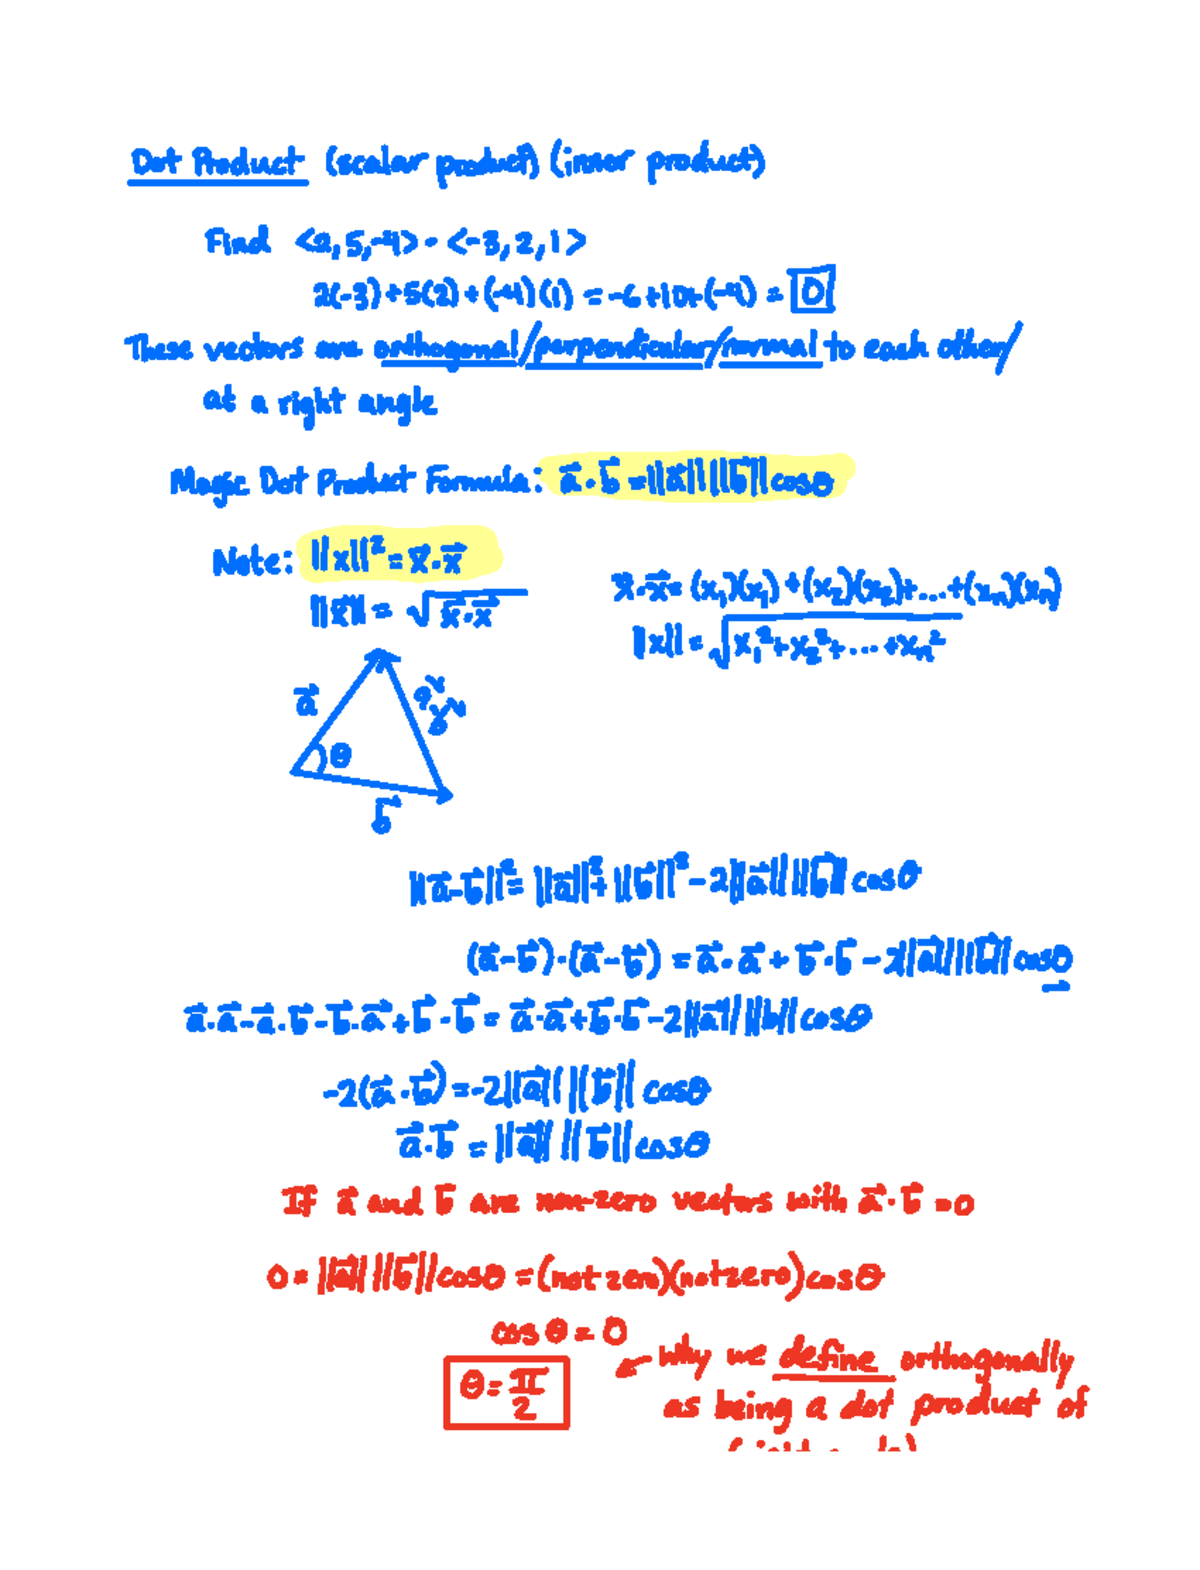 Dot Product (scalar product) (inner product)
Find <2,5,-4> · <-3,2,1>
2(-3)+5(2)+(-4)(1) = -6+10+(-4) = 0
These vectors are orthogonal/perpendicular/normal to each other/
at a right angle
Magic Dot Product Formula: a⃗·b⃗ = ||a⃗|| ||b⃗|| cosθ
Note: ||x||² = x⃗·x⃗
||x⃗|| = √(x⃗·x⃗)
x⃗·x⃗ = (x₁)(x₁)+(x₂)(x₂)+...+(xₙ)(xₙ)
||x|| = √(x₁²+x₂²+...+xₙ²)
a⃗
a⃗-b⃗
θ
b⃗
||a⃗-b⃗||² = ||a⃗||²+||b⃗||²-2||a⃗|| ||b⃗|| cosθ
(a⃗-b⃗)·(a⃗-b⃗) = a⃗·a⃗+b⃗·b⃗-2||a⃗|| ||b⃗|| cosθ
a⃗·a⃗-a⃗·b⃗-b⃗·a⃗+b⃗·b⃗ = a⃗·a⃗+b⃗·b⃗-2||a⃗|| ||b|| cosθ
-2(a⃗·b⃗) = -2||a⃗|| ||b⃗|| cosθ
a⃗·b⃗ = ||a⃗|| ||b⃗|| cosθ
If a⃗ and b⃗ are non-zero vectors with a⃗·b⃗ = 0
0 = ||a⃗|| ||b⃗|| cosθ = (not zero)(not zero) cosθ
cosθ = 0
θ = π/2
why we define orthogonally
as being a dot product of